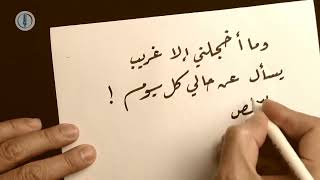 وما أخجلني إلا غريب
يسأل عن حالي كل يوم !